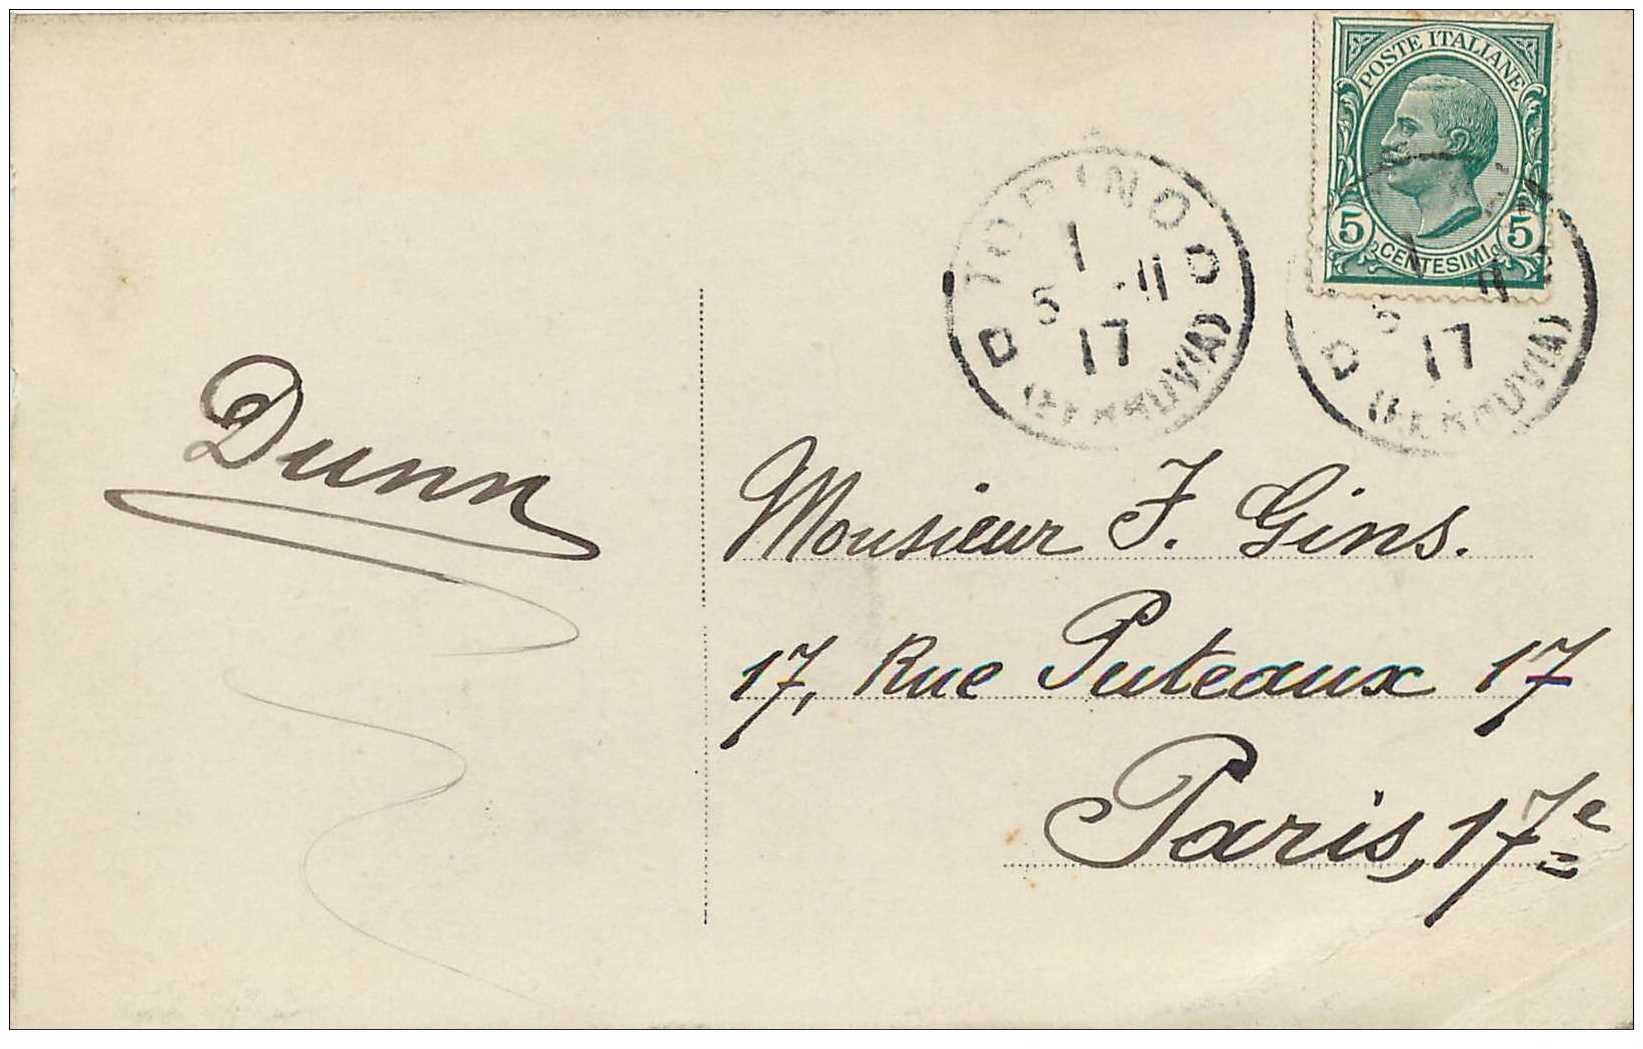 POSTE ITALIANE
5 5
CENTESIMI
TORINO
1
5 - 11
17
(FERROVIA)
1
5 11
17
(FERROVIA)
Dunn
Monsieur J. Gins.
17, Rue Puteaux 17
Paris, 17e